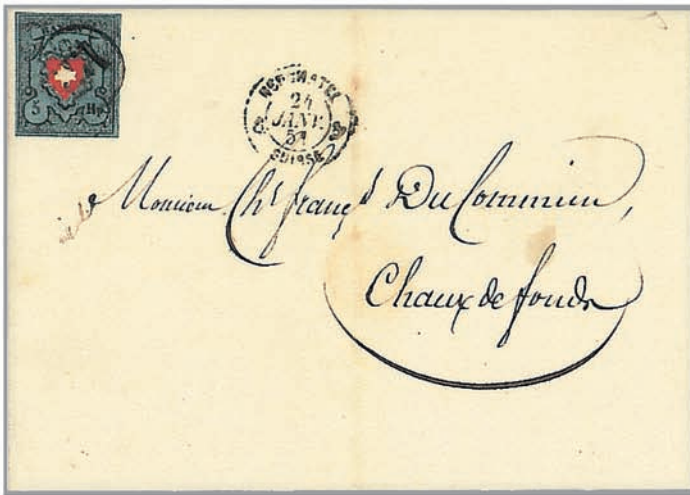 5 Rp
NEUCHATEL
24
JANV.
51
SUISSE
Monsieur Chs franços DuCommun,
Chaux de fonds